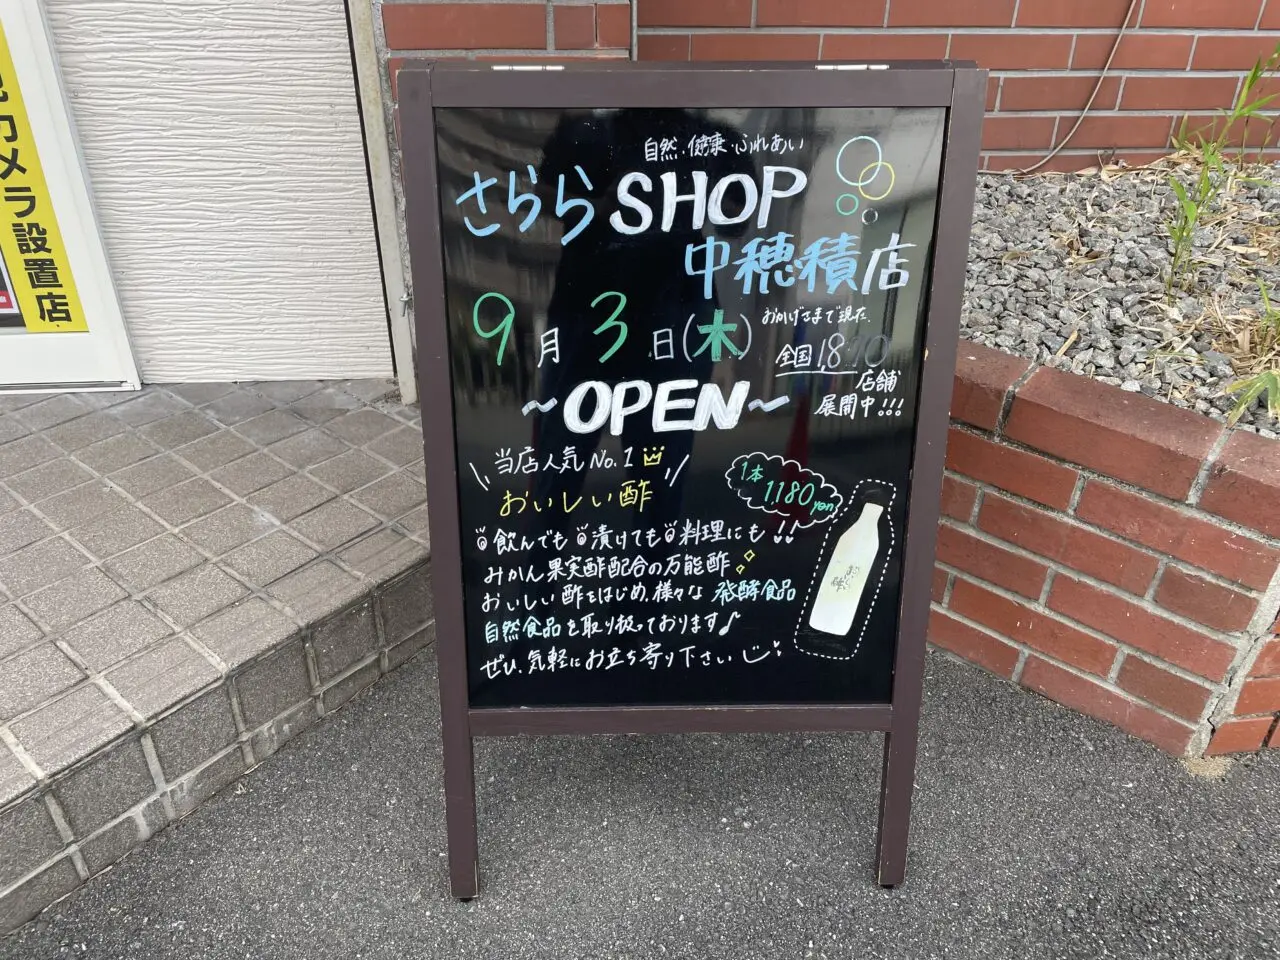 自然・健康・ふれあい
さらら SHOP
中穂積店
9月3日(木)
おかげさまで現在、
全国1,870
店舗
展開中!!!
~OPEN~
当店人気No.1
おいしい酢
1本
1,180yen
飲んでも 漬けても 料理にも!!
みかん果実酢配合の万能酢
おいしい酢をはじめ、様々な 発酵食品
自然食品を取り扱っております♪
ぜひ、気軽にお立ち寄り下さい
おいしい
酢
カメラ設置店